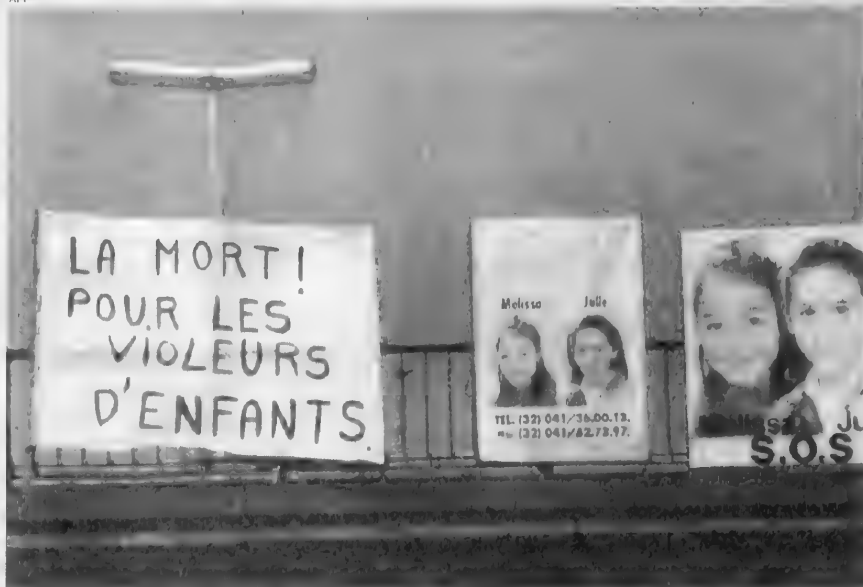 LA MORT!
POUR LES
VIOLEURS
D'ENFANTS.
Melissa Julie
TEL. (32) 041/36.00.13.
(32) 041/62.73.97.
Ju
S.O.S